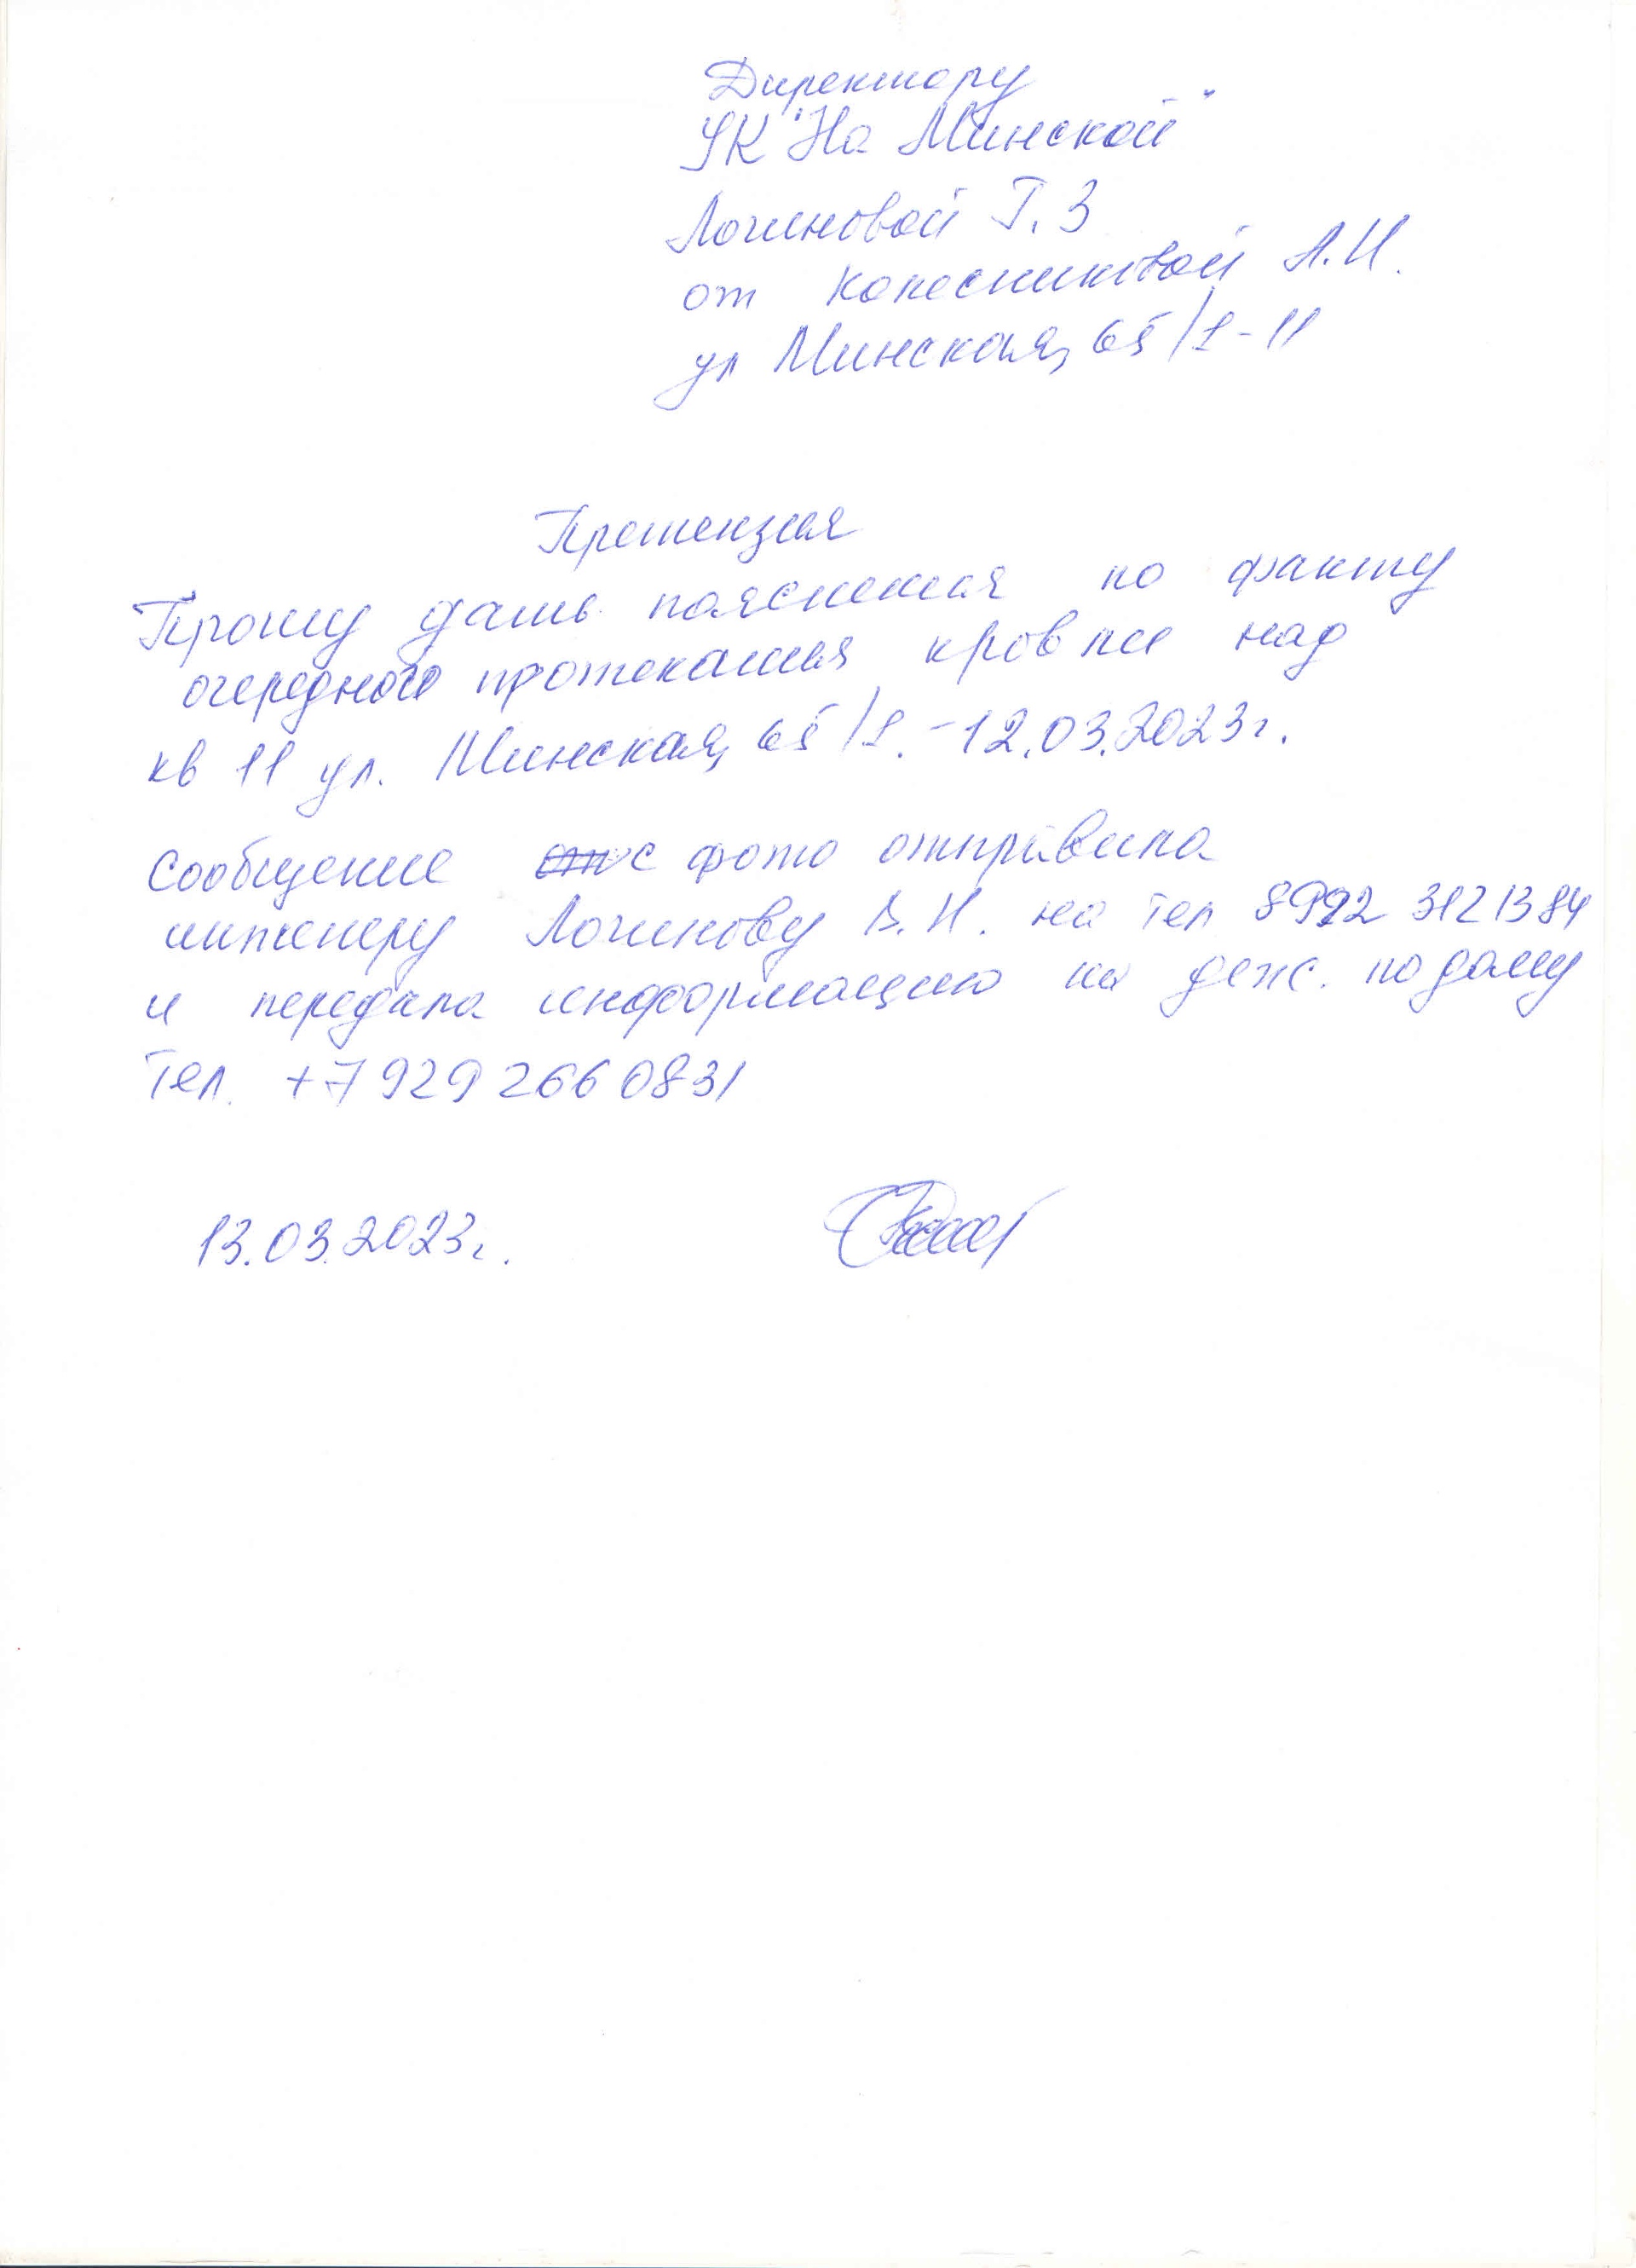 Директору
УК "На Минской"
Логиновой Г. З
от Колесниковой А.И.
ул Минская, 65/1-11
Претензия
Прошу дать пояснения по факту
очередного протекания кровли над
кв 11 ул. Минская, 65/1. - 12.03.2023г.
Сообщение с фото отправила
инженеру Логинову В.И. на тел 8992 3121384
и передала информацию на деж. по дому
Тел. +7 929 266 0831
13.03.2023г.